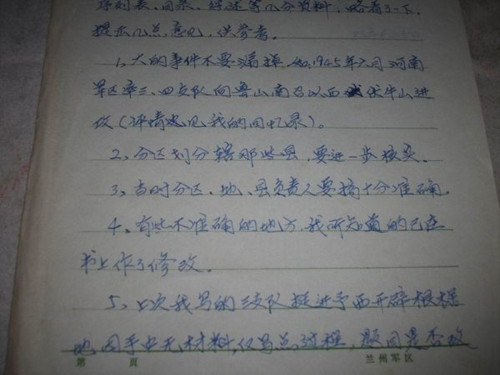 序列表、目录、综述等几份资料，略看了一下，
提出几点意见，供参考。
1、大的事件不要漏掉，如：1945年六月河南
军区率三、四支队向鲁山南召以西伏牛山进
攻（详情见我的回忆录）。
2、分区划分辖那些县，要进一步核实。
3、当时分区、地、县负责人要搞十分准确。
4、有些不准确的地方，我所知道的已在
书上作了修改。
5、上次我写的三支队挺进予西开辟根据
地，因手中无材料，仅写点过程，题目是否改
第 页 兰州军区